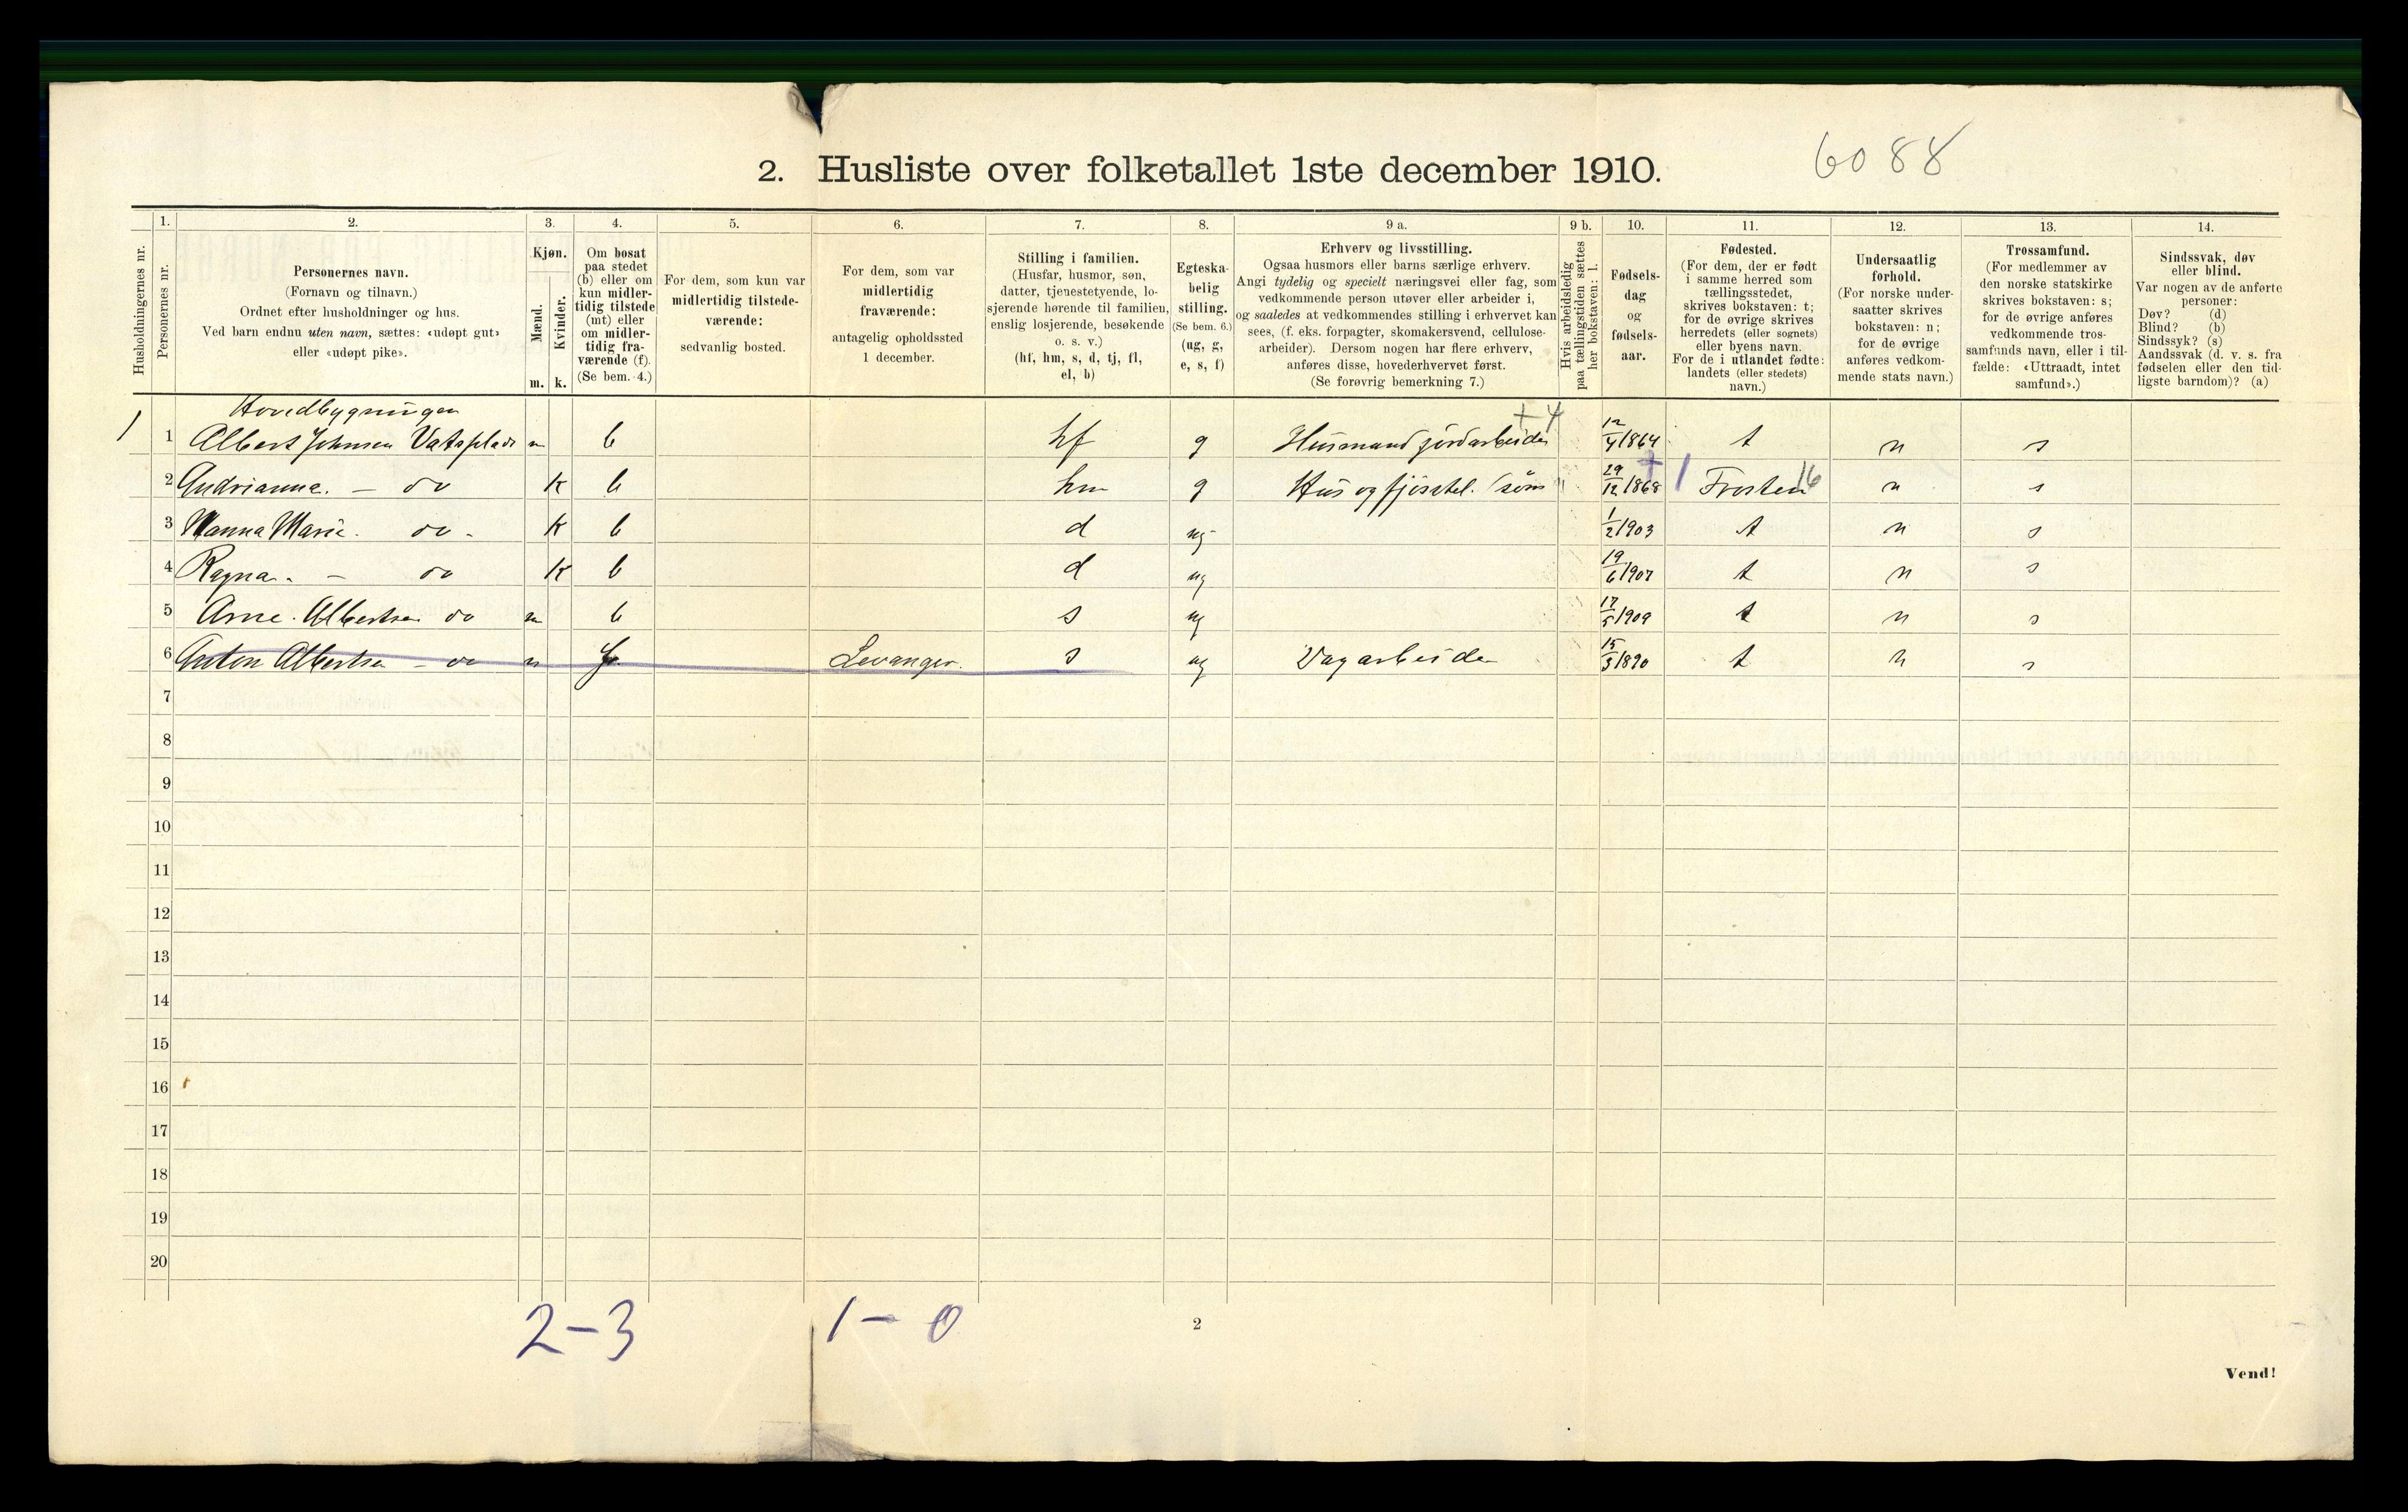 2. Husliste over folketallet 1ste december 1910.
6088
Husholdningernes nr.
1.
Personernes nr.
2.
Personernes navn.
(Fornavn og tilnavn.)
Ordnet efter husholdninger og hus.
Ved barn endnu uten navn, sættes: «udøpt gut»
eller «udøpt pike».
3.
Kjøn.
Mænd.
Kvinder.
m. k.
4.
Om bosat
paa stedet
(b) eller om
kun midler-
tidig tilstede
(mt) eller
om midler-
tidig fra-
værende (f).
(Se bem. 4.)
5.
For dem, som kun var
midlertidig tilstede-
værende:
sedvanlig bosted.
6.
For dem, som var
midlertidig
fraværende:
antagelig opholdssted
1 december.
7.
Stilling i familien.
(Husfar, husmor, søn,
datter, tjenestetyende, lo-
sjerende hørende til familien,
enslig losjerende, besøkende
o. s. v.)
(hf, hm, s, d, tj, fl,
el, b)
8.
Egteska-
belig
stilling.
(Se bem. 6.)
(ug, g,
e, s, f)
9 a.
Erhverv og livsstilling.
Ogsaa husmors eller barns særlige erhverv.
Angi tydelig og specielt næringsvei eller fag, som
vedkommende person utøver eller arbeider i,
og saaledes at vedkommendes stilling i erhvervet kan
sees, (f. eks. forpagter, skomakersvend, cellulose-
arbeider). Dersom nogen har flere erhverv,
anføres disse, hovederhvervet først.
(Se forøvrig bemerkning 7.)
9 b.
Hvis arbeidsledig
paa tællingstiden sættes
her bokstaven: l.
10.
Fødsels-
dag
og
fødsels-
aar.
11.
Fødested.
(For dem, der er født
i samme herred som
tællingsstedet,
skrives bokstaven: t;
for de øvrige skrives
herredets (eller sognets)
eller byens navn.
For de i utlandet fødte:
landets (eller stedets)
navn.)
12.
Undersaatlig
forhold.
(For norske under-
saatter skrives
bokstaven: n;
for de øvrige
anføres vedkom-
mende stats navn.)
13.
Trossamfund.
(For medlemmer av
den norske statskirke
skrives bokstaven: s;
for de øvrige anføres
vedkommende tros-
samfunds navn, eller i til-
fælde: «Uttraadt, intet
samfund».)
14.
Sindssvak, døv
eller blind.
Var nogen av de anførte
personer:
Døv? (d)
Blind? (b)
Sindssyk? (s)
Aandssvak (d. v. s. fra
fødselen eller den tid-
ligste barndom)? (a)
Hovedbygningen
1 1 Albert Johnsen Vatsplads m b hf g Husmand jordarbeider +4 12/4 1864 t n s
2 Gudrianna. - do K b hm g Hus og fjøsstel. søm 29/12 1868 1 Frosten 16 n s
3 Nanna Marie. do - K b d ug 1/2 1903 t n s
4 Ragna. - do K b d ug 19/6 1907 t n s
5 Arne. Albertsen do m b s ug 17/5 1909 t n s
6 Anton Albertsen - do m f Levanger. s ug Vagarbeider 15/3 1890 t n s
7
8
9
10
11
12
13
14
15
16
17
18
19
20
2-3 1-0
2
Vend!